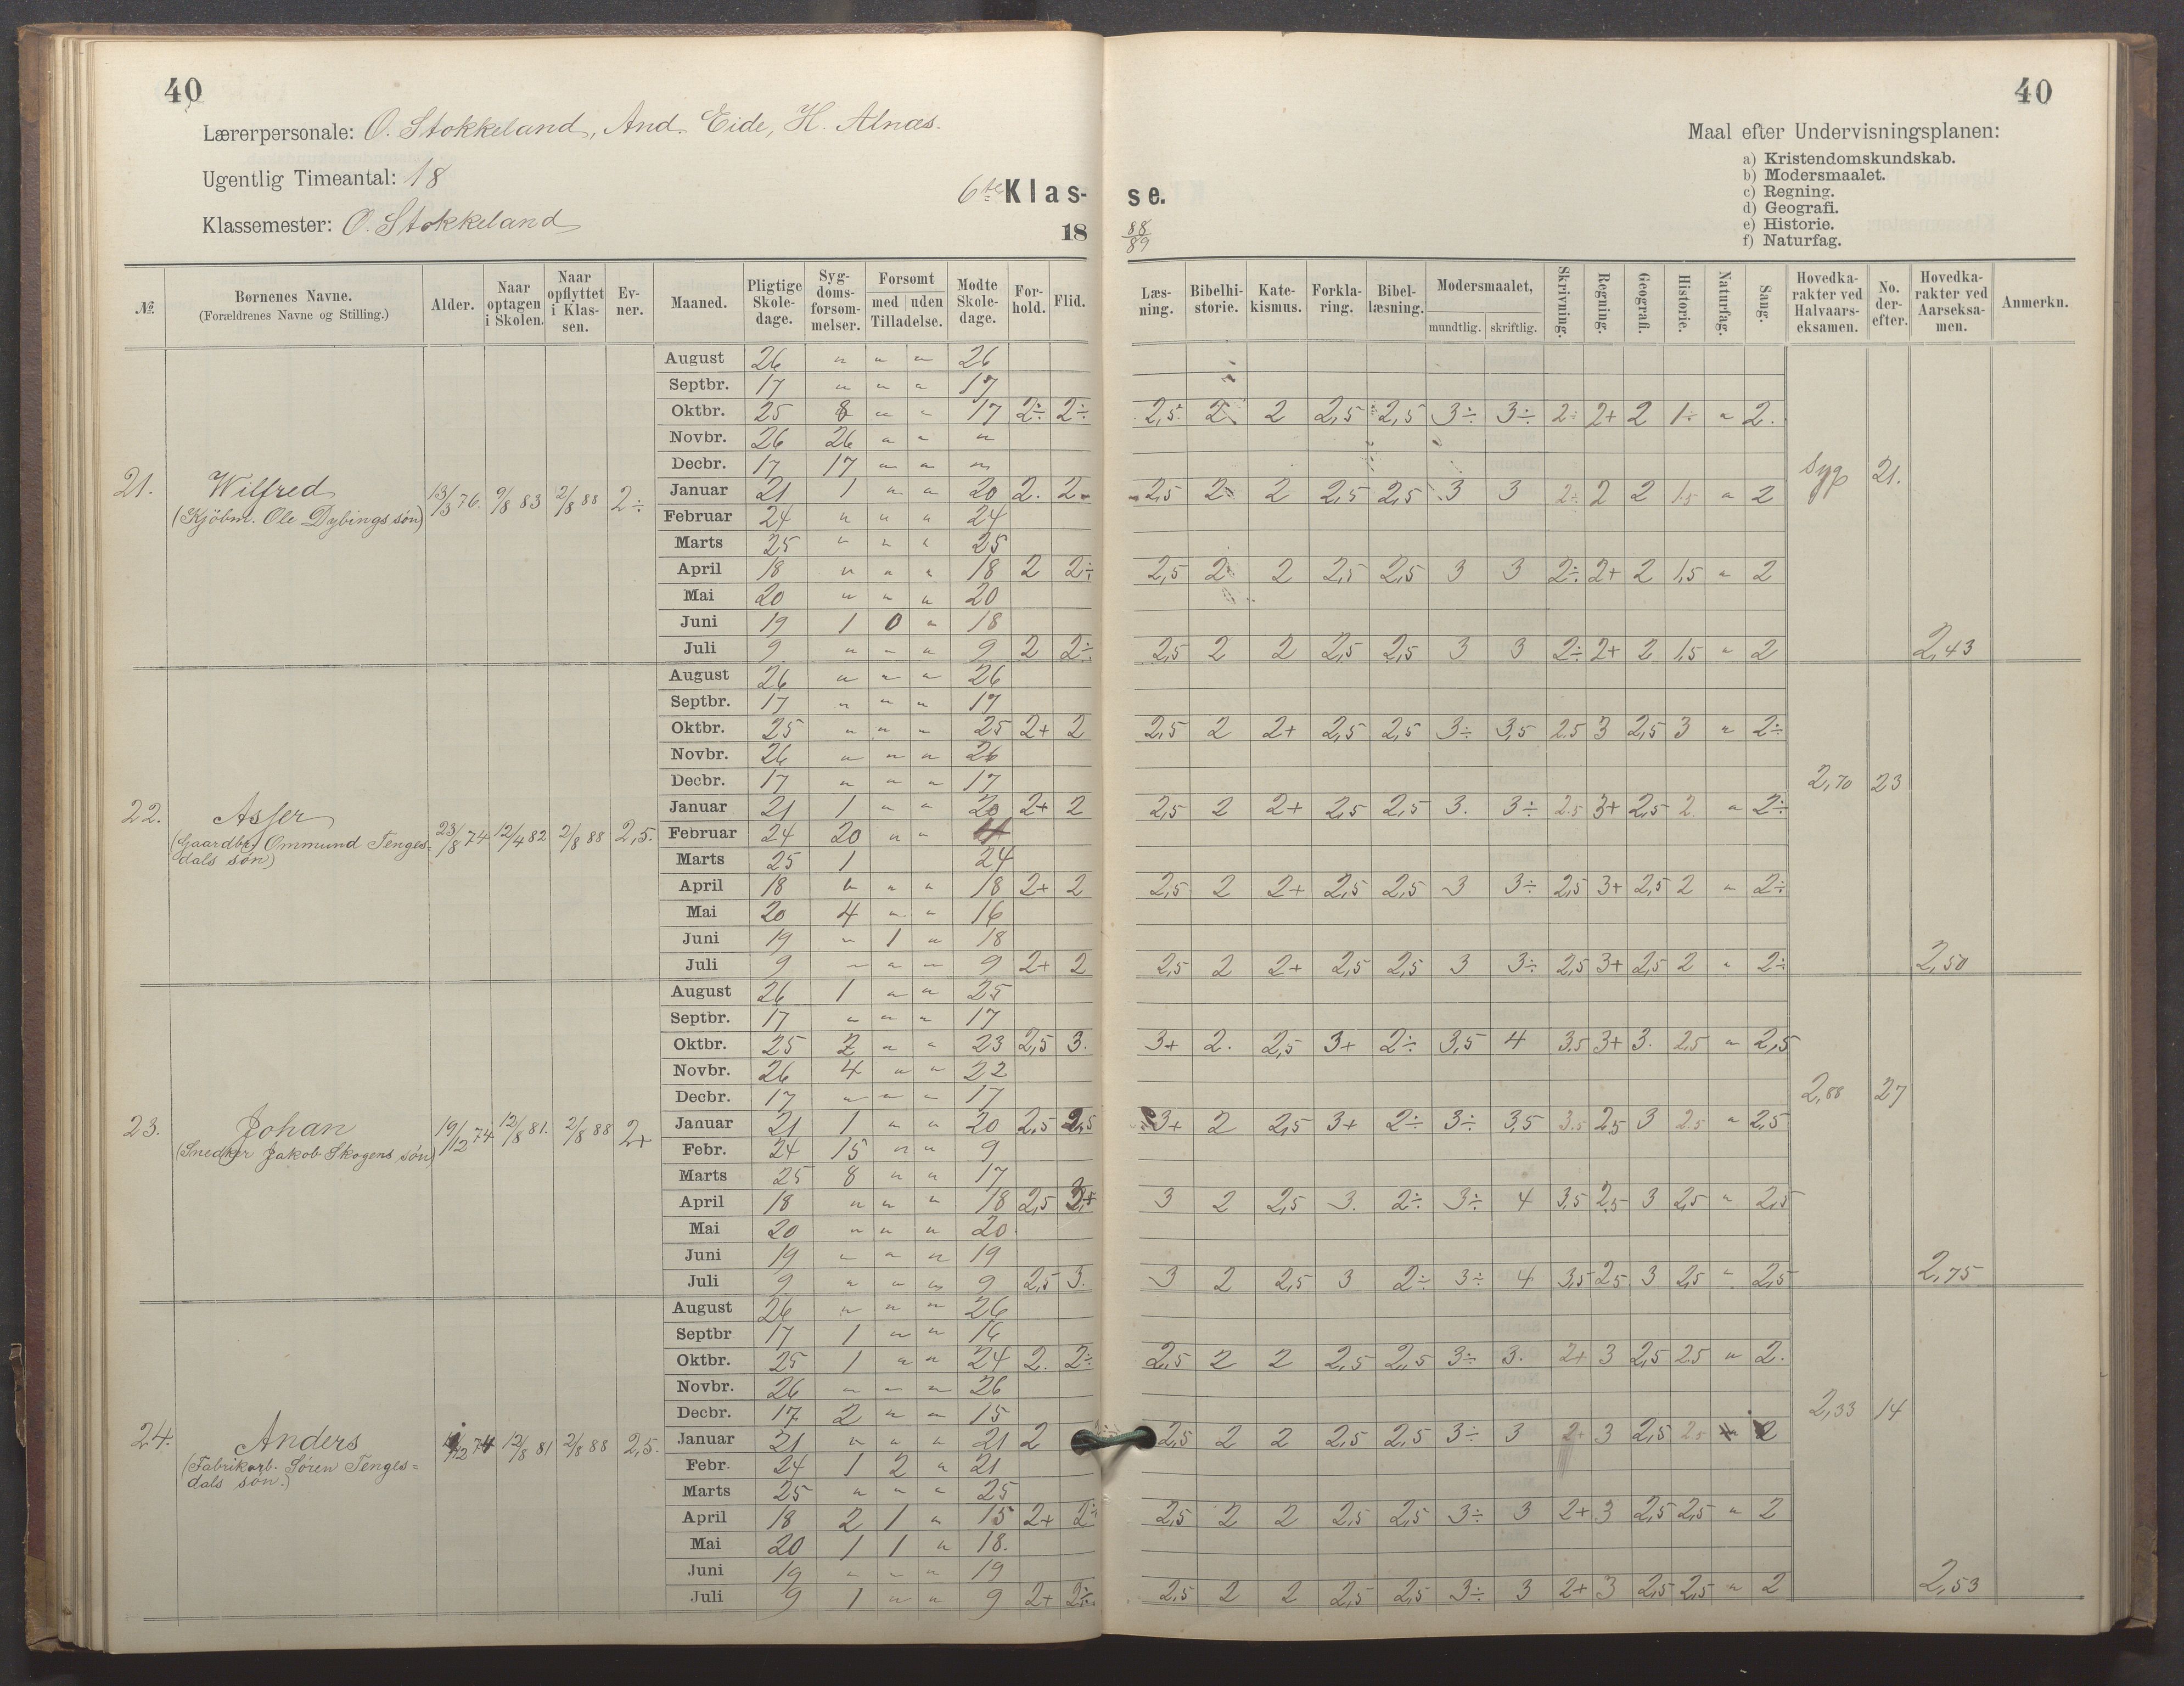 40
Lærerpersonale: O. Stokkeland, And. Eide, H. Alnæs.
Ugentlig Timeantal: 18
Klassemester: O. Stokkeland
6te Klas-
18
№ Børnenes Navne. (Forældrenes Navne og Stilling.) Alder. Naar optagen i Skolen. Naar opflyttet i Klassen. Evner. Maaned. Pligtige Skoledage. Sygdomsforsømmelser. Forsømt med uden Tilladelse. Mødte Skoledage. Forhold. Flid.
21. Wilfred (Kjöbm. Ole Dybings søn) 13/3 76. 9/8 83 2/8 88 2÷
August 26 " " " 26
Septbr. 17 " " " 17
Oktbr. 25 8 " " 17 2÷ 2÷
Novbr. 26 26 " " "
Decbr. 17 17 " " "
Januar 21 1 " " 20 2. 2
Februar 24 " " " 24
Marts 25 " " " 25
April 18 " " " 18 2 2÷
Mai 20 " " " 20
Juni 19 1 0 " 18
Juli 9 " " " 9 2 2÷
22. Asser (Gaardbr. Ommund Tengesdals søn) 23/8 74 12/4 82 2/8 88 2,5.
August 26 " " " 26
Septbr. 17 " " " 17
Oktbr. 25 " " " 25 2+ 2
Novbr. 26 " " " 26
Decbr. 17 " " " 17
Januar 21 1 " " 20 2+ 2
Februar 24 20 " " 4
Marts 25 1 24
April 18 " " " 18 2+ 2
Mai 20 4 " " 16
Juni 19 " 1 " 18
Juli 9 " " " 9 2+ 2
23. Johan (Snedker Jakob Skogens søn) 19/12 74 12/8 81. 2/8 88 2+
August 26 1 " " 25
Septbr. 17 " " " 17
Oktbr. 25 2 " " 23 2,5 3.
Novbr. 26 4 " " 22
Decbr. 17 " " " 17
Januar 21 1 " " 20 2,5 2,5
Febr. 24 15 " " 9
Marts 25 8 " " 17
April 18 " " " 18 2,5
Mai 20 " " " 20
Juni 19 " " " 19
Juli 9 " " " 9 2,5 3.
24. Anders (Fabrikarb. Søren Tengesdals søn.) 12/8 81 2/8 88 2,5.
August 26 " " " 26
Septbr 17 1 " " 16
Oktbr. 25 1 " " 24 2. 2÷
Novbr. 26 " " " 26
Decbr. 17 2 " " 15
Januar 21 " " " 21 2
Febr. 24 1 2 " 21
Marts 25 " " " 25
April 18 2 1 " 15 2+ 2÷
Mai 20 1 1 " 18.
Juni 19 " " " 19
Juli 9 1 " " 9 2+ 2÷
40
Maal efter Undervisningsplanen:
a) Kristendomskundskab.
b) Modersmaalet.
c) Regning.
d) Geografi.
e) Historie.
f) Naturfag.
se.
88/89
Læsning. Bibelhistorie. Katekismus. Forklaring. Bibellæsning. Modersmaalet, mundtlig. skriftlig. Skrivning. Regning. Geografi. Historie. Naturfag. Sang. Hovedkarakter ved Halvaarseksamen. No. derefter. Hovedkarakter ved Aarseksamen. Anmerkn.
2,5 2 2 2,5 2,5 3÷ 3÷ 2÷ 2+ 2 1÷ " 2.
syg 21.
2,5 2 2 2,5 2,5 3 3 2÷ 2 2 1.5 " 2
2,5 2 2 2,5 2,5 3 3 2÷ 2+ 2 1,5 " 2
2,5 2 2 2,5 2,5 3 3 2÷ 2+ 2 1,5 " 2 2,43
2,5 2 2+ 2,5 2,5 3÷ 3,5 2.5 3 2,5 3 " 2÷
2,70 23
2,5 2 2+ 2,5 2,5 3. 3÷ 2.5 3+ 2,5 2. " 2÷
2,5 2 2+ 2,5 2,5 3 3÷ 2,5 3+ 2,5 2 " 2÷
2,5 2 2+ 2,5 2,5 3 3÷ 2,5 3+ 2,5 2 " 2÷ 2,50
3+ 2. 2,5 3+ 2÷ 3,5 4 3.5 3+ 3. 2,5 " 2,5
2,88 27
3+ 2 2,5 3+ 2÷ 3÷ 3,5 3.5 2,5 3 2.5 " 2,5
3 2 2,5 3. 2÷ 3÷ 4 3,5 2,5 3 2,5 " 2,5
3 2 2,5 3 2÷ 3÷ 4 3,5 2,5 3 2,5 " 2,5 2,75
2,5 2 2 2,5 2,5 3÷ 3. 2+ 3 2,5 2.5 " 2.
2,33 14
2,5 2 2 2,5 2,5 3÷ 3 2+ 3 2,5 2.5 " 2
2,5 2 2 2,5 2,5 3÷ 3 2+ 3 2,5 2,5 " 2
2,5 2 2 2,5 2,5 3÷ 3 2+ 3 2,5 2,5 " 2 2,53